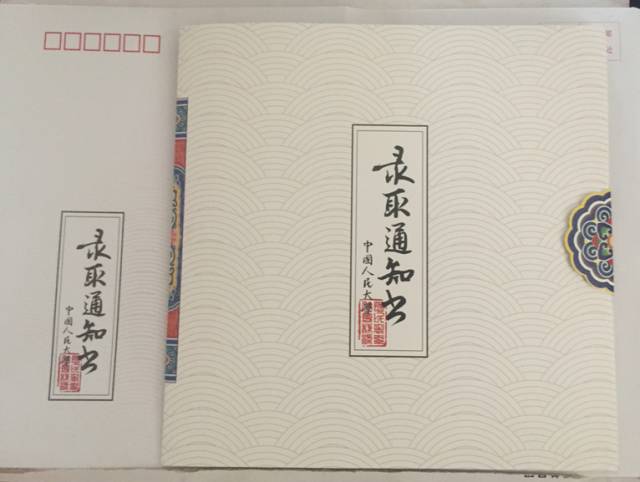 录取通知书
中国人民大学
录取通知书
中国人民大学